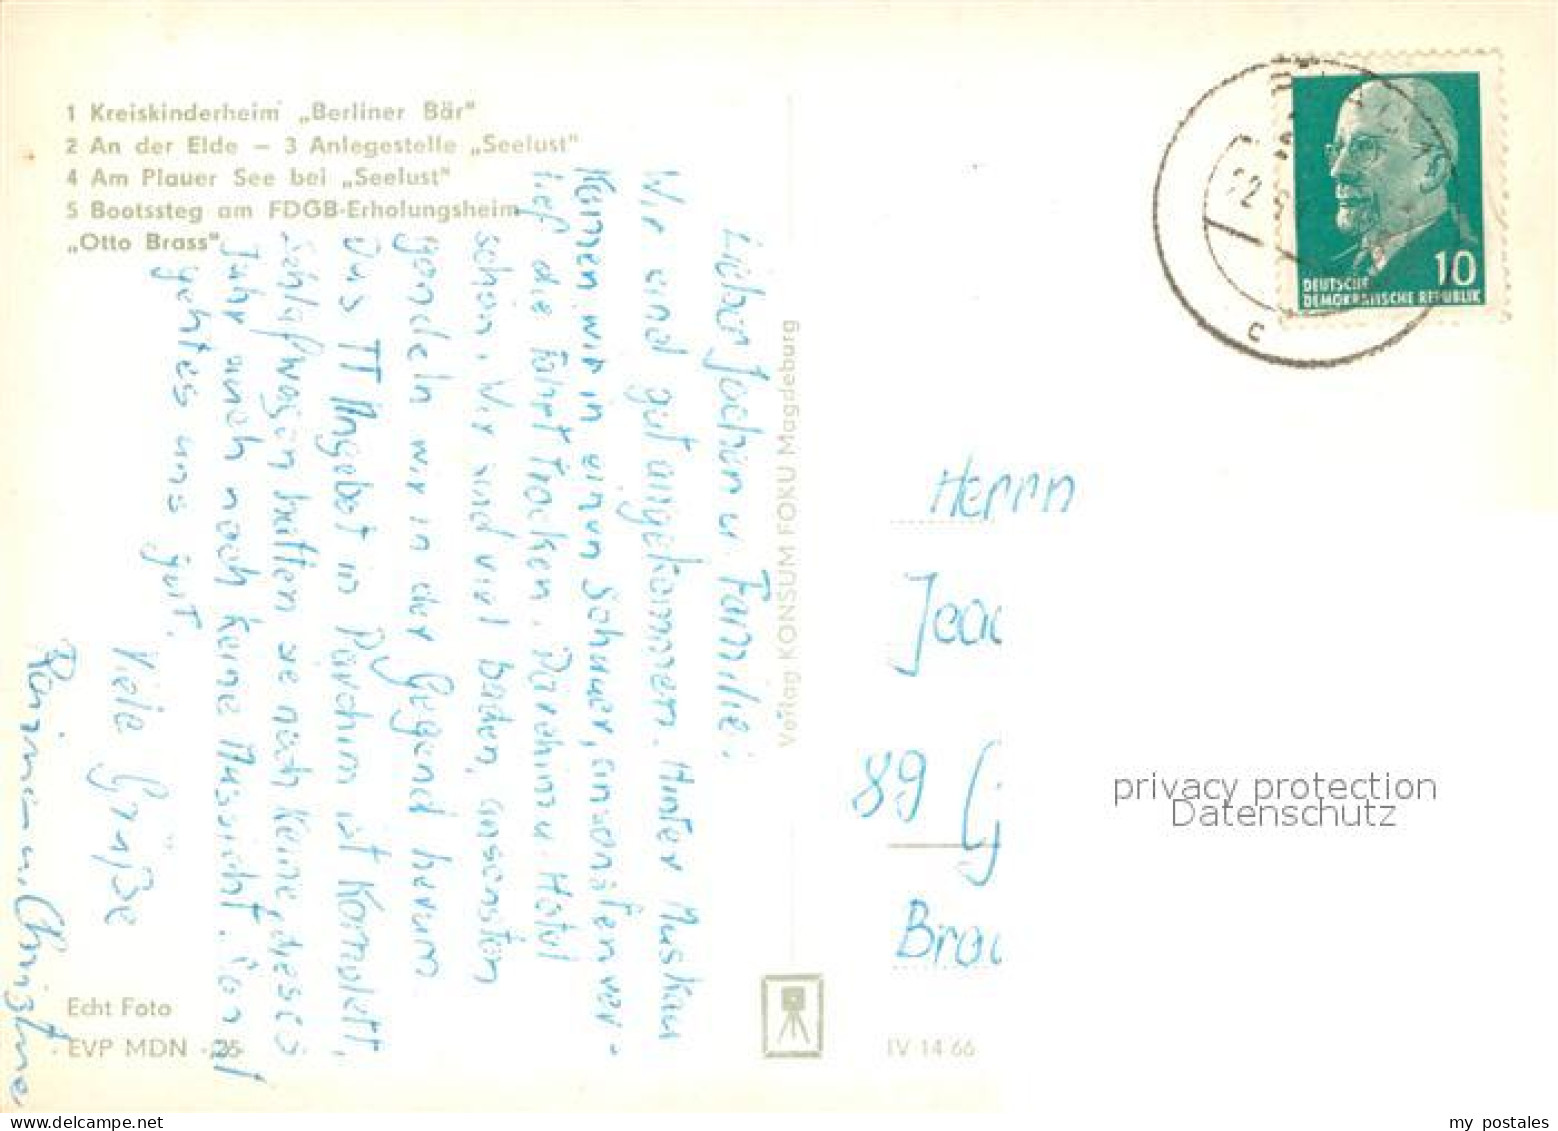 1 Kreiskinderheim „Berliner Bär"
2 An der Elde – 3 Anlegestelle „Seelust"
4 Am Plauer See bei „Seelust"
5 Bootssteg am FDGB-Erholungsheim
„Otto Brass"
Lieber Jochen u. Familie!
Wir sind gut angekommen. Hinter Muskau
kamen wir in einen Schauer, ansonsten ver-
lief die Fahrt trocken. Parchimer Hotel
schön. Wir sind viel baden, ansonsten
gondeln wir in der Gegend herum.
Das TT Angebot in Parchim ist komplett,
Schlafwagen hatten sie noch keine, dieses
Jahr auch noch keine Aussicht. Sonst
geht es uns gut.
Viele Grüße
Rainer u. Christine
Echt Foto
EVP MDN -,25
Verlag KONSUM FOKU Magdeburg
IV 14 66
22.
C
10
DEUTSCHE
DEMOKRATISCHE REPUBLIK
Herrn
Joac
89 G
Brau
privacy protection
Datenschutz
my postales